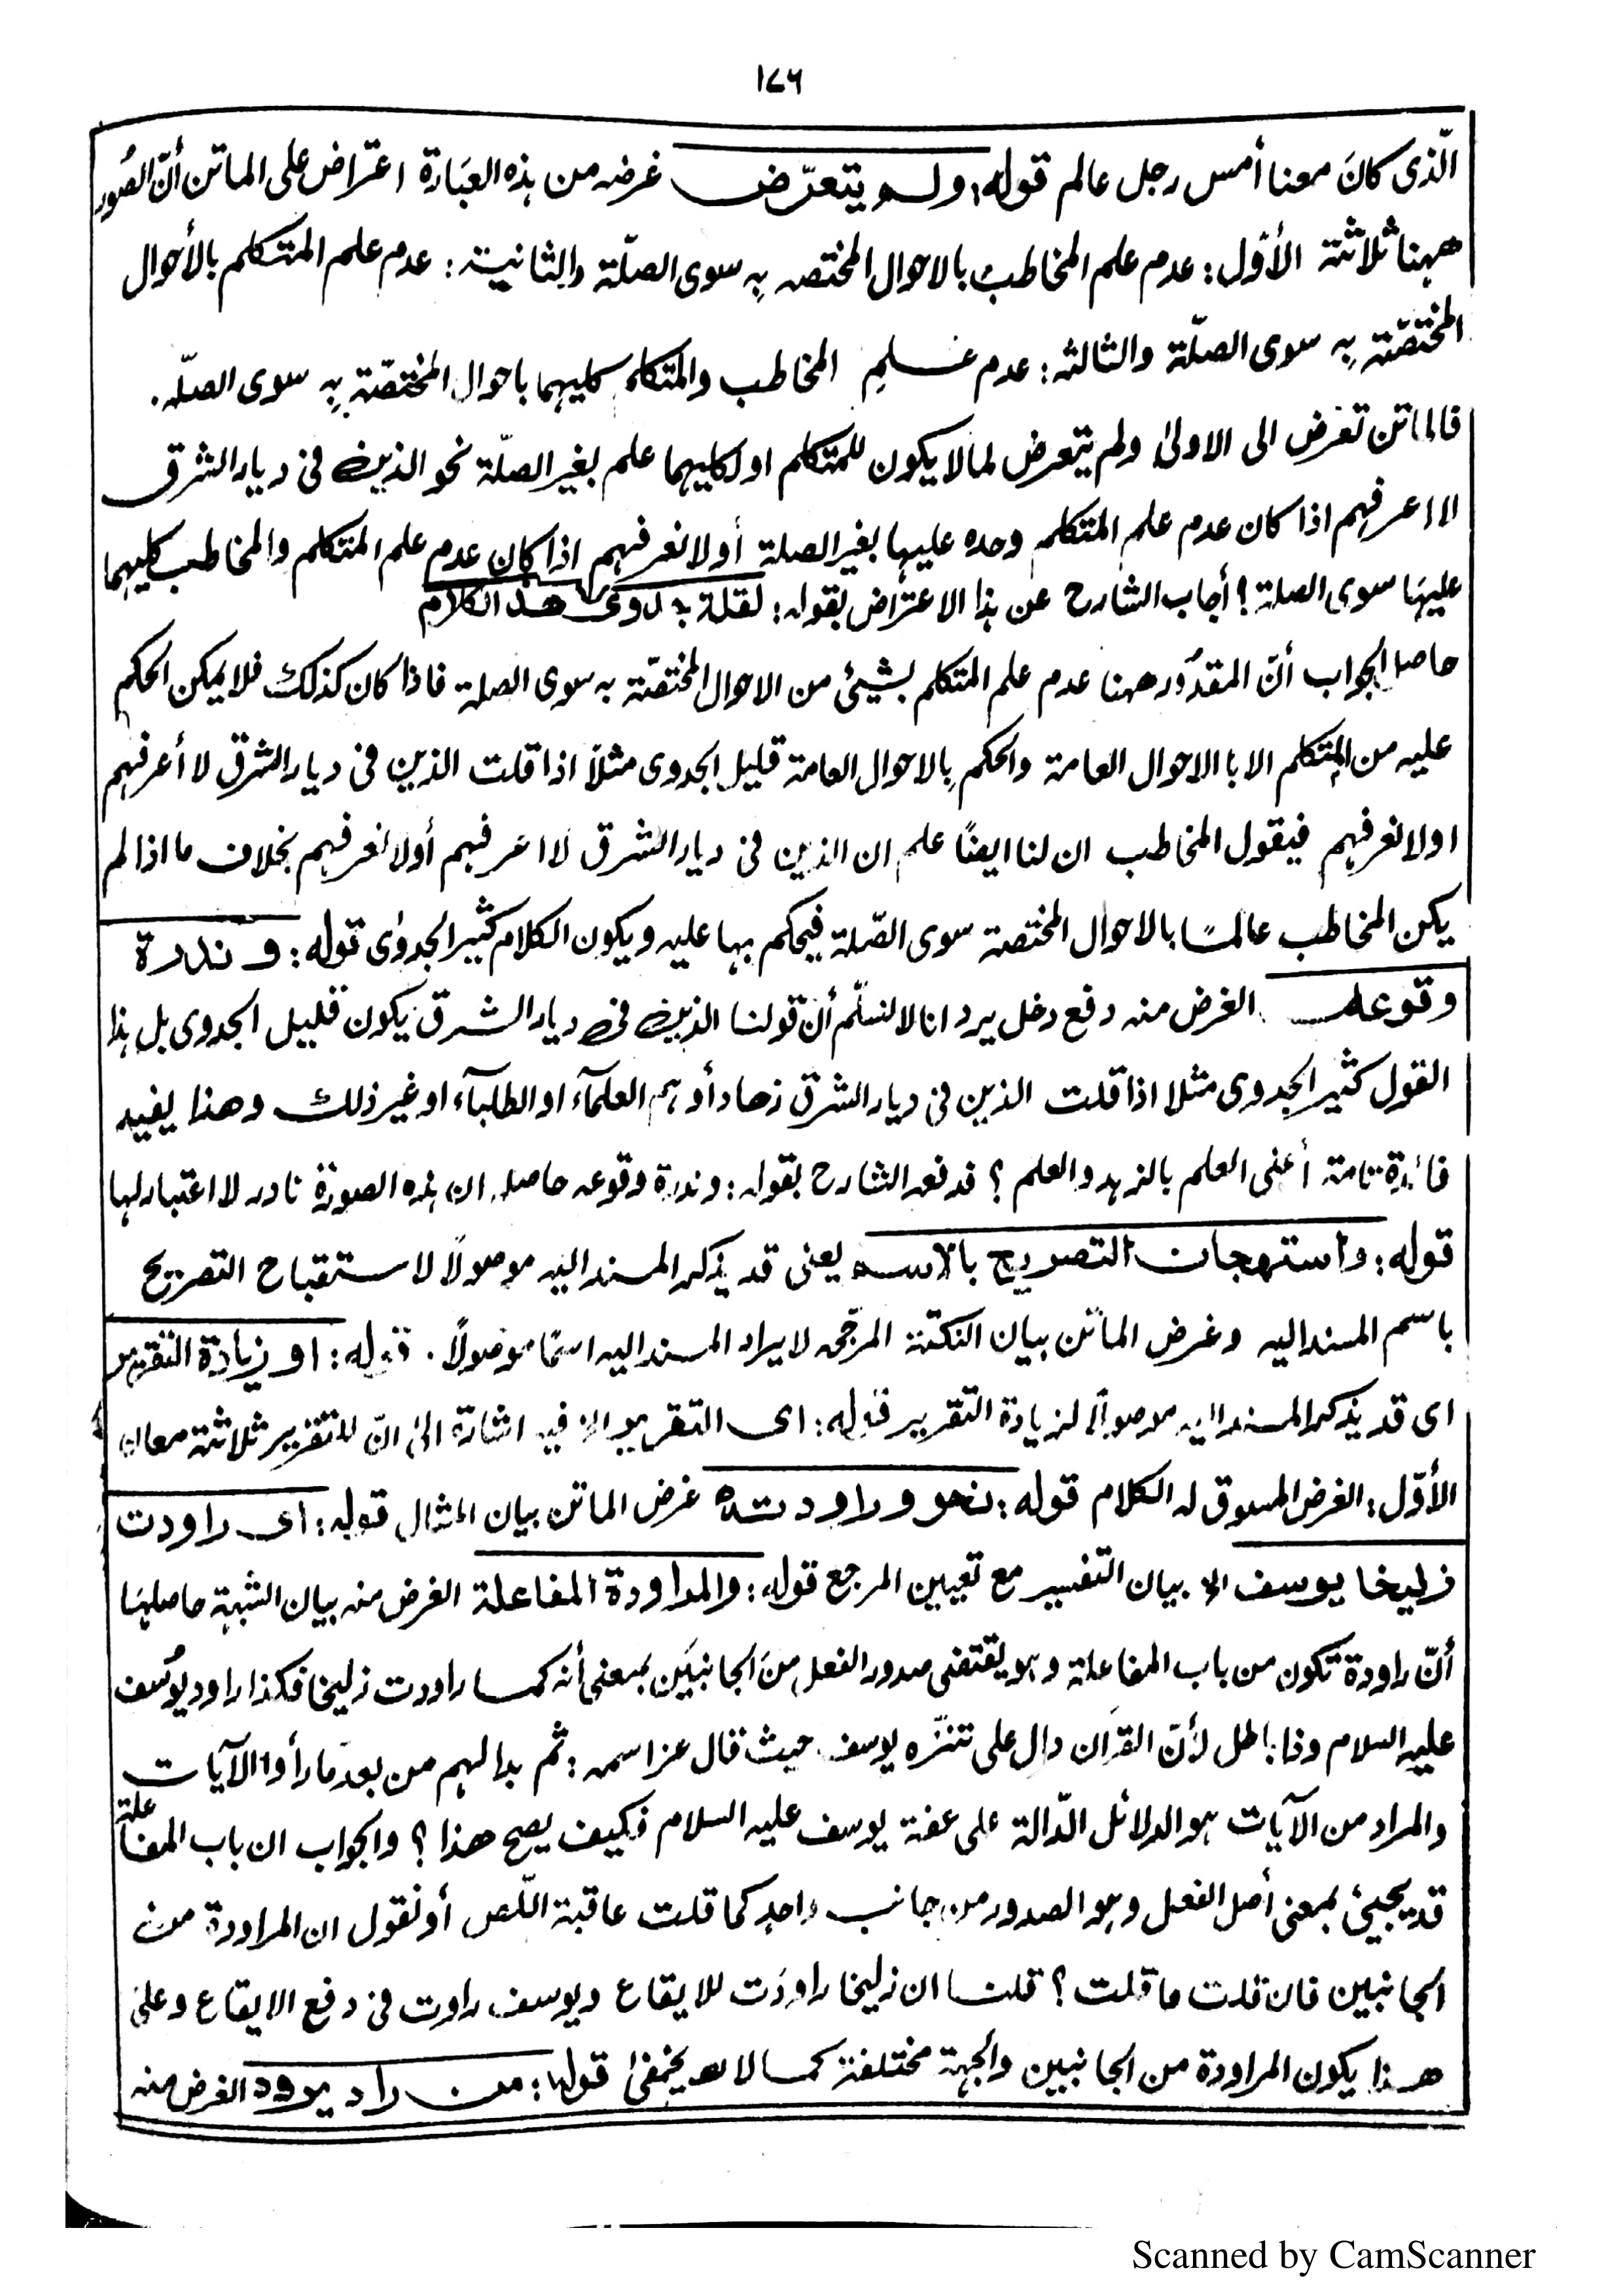 ١٧٦
الّذى كانَ معنا أمس رجل عالم قوله: ولم يتعرّض غرضه من هذه العبَارة اعتراض على الماتن أنّ الصُور
ههنا ثلاثة الأوّل: عدم علم المخاطب بالاحوال المختصه بِه سوى الصلّة والثانية: عدم علم المتكلم بالأحوال
المختصّة بِه سوى الصلّة والثالثه: عدم علمِ المخاطب والمتكلم كليهما باحوال المختصّة بِه سوى الصلّه.
فالماتن تعرض الى الاولىٰ ولم يتعرض لما لا يكون للمتكلم او لكليهما علم بغير الصلّة نحو الذين فى ديار الشرق
لا اعرفهم اذا كان عدم علم المتكلم وحده عليها بغير الصلة أو لا نعرفهم اذا كان عدم علم المتكلم والمخاطب كليهما
عليهَا سوى الصلة؟ أجاب الشارح عن هذا الاعتراض بقوله: لقلة جدوى هذا الكلام
حاصل الجواب أنّ المقدّور ههنا عدم علم المتكلم بشيئ من الاحوال المختصّة به سوى الصلة فاذا كان كذلك فلا يمكن الحكم
عليه من المتكلم الا باالاحوال العامة والحكمِ بالاحوال العامة قليل الجدوى مثلاً اذا قلت الذين فى ديار الشرق لا أعرفهم
اولا نعرفهم فيقول المخاطب ان لنا ايضًا علم ان الذين فى ديار الشرق لا اعرفهم أولا نعرفهم بخلاف ما اذا لم
يكن المخاطب عالمًا بالاحوال المختصة سوى الصّلة فيحكم بها عليه ويكون الكلام كثير الجدوٰى قوله: و ندرة
وقوعه الغرض منه دفع دخل يرد انا لا نسلّم أن قولنا الذين فى ديار الشرق يكون قليل الجدوى بل هذا
القول كثير الجدوى مثلا اذا قلت الذين فى ديار الشرق زهاد أو هم العلمآء او الطلبآء او غير ذلك وهذا يفيد
فائدة تامة أعنى العلم بالزهد والعلم؟ فدفعه الشارح بقوله: وندرة وقوعه حاصله ان هذه الصورة نادر لا اعتبار لها
قوله: واستهجان التصريح بالاسم يعنى قد يذكر المسند اليه موصولًا لاستقباح التصريح
باسم المسند اليه وغرض الماتن بيان النكتة المرجحه لايراد المسند اليه اسمًا موصولًا. قوله: او زيادة التقرير
اى قد يذكر المسند اليه موصولًا لزيادة التقرير قوله: اى التقرير الخ فيه اشارة الىٰ انّ للتقرير ثلاثة معان
الأوّل: الغرض المسوق له الكلام قوله: نحو وراودته غرض الماتن بيان المثال قوله: اى راودت
زليخا يوسف الخ بيان التفسير مع تعيين المرجع قوله: والمراودة المفاعلة الغرض منه بيان الشبهة حاصلهَا
أنّ راودة تكون من باب المفاعلة وهو يقتضى صدور الفعل منَ الجانبَين بمعنى أنه كما راودت زليخا فكذا راود يوسُف
عليه السلام وذا باطل لأنّ القرآن دال على تنزّه يوسف حيث قال عز اسمه: ثم بدا لهم من بعد ما رأوا الآيات
والمراد من الآيات هو الدلائل الدّالة على عفة يوسف عليه السلام فكيف يصح هذا؟ والجواب ان باب المفاعلة
قد يجيئ بمعنى أصل الفعل وهو الصدور من جانب واحدٍ كما قلت عاقبة اللّص أو نقول ان المراودة من
الجانبين فان قلت ما قلت؟ قلنا ان زليخا راودَت للايقاع ويوسف راوت فى دفع الايقاع وعلى
هذا يكون المراودة من الجانبين والجهة مختلفة كما لا يخفىٰ قوله: من راد يرود الغرض منه
Scanned by CamScanner